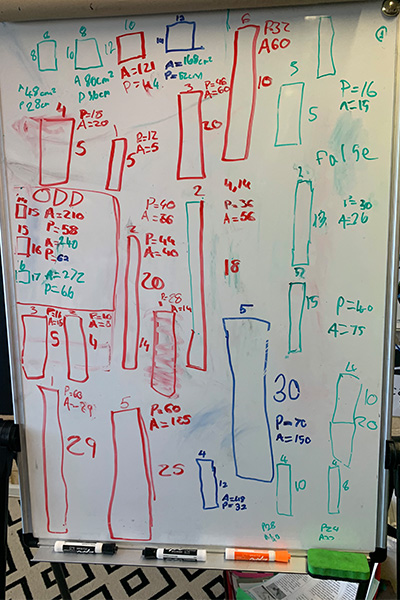 6
8
8
10
10
12
12
P32
A60
A=121
A=168cm²
A 48cm²
P 28cm
A 80cm²
P 36cm
6
10
5
5
P=16
A=15
4
P=18
A=20
5
1
P=12
A=5
5
3
20
P=46
A=60
False
ODD
15
A=210
P=58
15
16
A=240
P=62
6
17
A=272
P=66
P=40
A=36
2
P=44
A=40
20
2
4,14
P=36
A=56
18
2
A=36
P=28
A=14
14
15
P=40
A=75
3
5
2
4
5
30
P=70
A=150
4
10
20
1
A=29
29
5
P=60
A=125
25
4
12
A=48
P=32
4
10
P28
4
8
P24